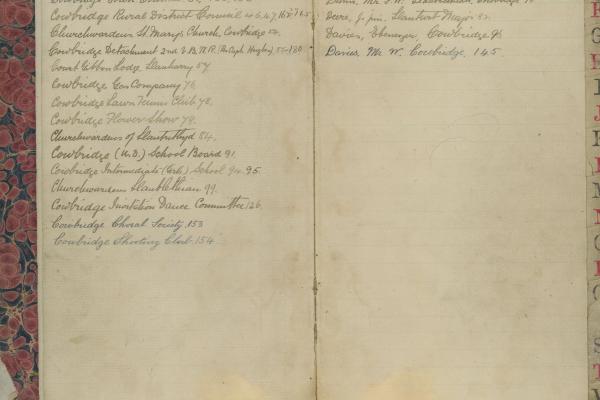 Cowbridge Rural District Council 46, 47,
Churchwardens St. Mary's Church, Cowbridge 52.
Cowbridge Detachment 2nd V.B.W.R. (Per Capt Hughes)
Court Gibbon Lodge, Llanharry 57.
Cowbridge Gas Company 76.
Cowbridge Lawn Tennis Club 78.
Cowbridge Flower Show 79.
Churchwardens of Llantrithyd 84.
Cowbridge (U.D.) School Board 91.
Cowbridge Intermediate (Girls) School 94. 95.
Churchwardens 99.
Cowbridge Invitation Dance Committee 126.
Cowbridge Choral Society. 153
Cowbridge Shooting Club. 154
Deere, J. jun. Llantwit Major
Davies, Ebenezer, Cowbridge
Davies Mr. W. Cowbridge. 145